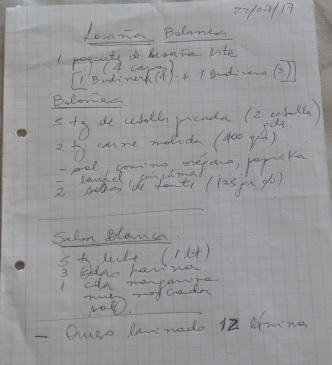 22/07/17
Lasaña Bolonesa
1 paquete de lasaña lista
(4 capas)
[1 Budinera (4) + 1 Budinera (3)]
Boloñesa
5 tz de cebolla picada (2 cebollas
gde)
2 tz carne molida (400 grs)
- sal comino orégano, paprika
- laurel
2 salsas de tomate (125 gr c/u)
Salsa Blanca.
5 tz leche (1 lt)
3 cdas harina
1 cda margarina
nuez moscada
sal.
- Queso laminado 12 láminas